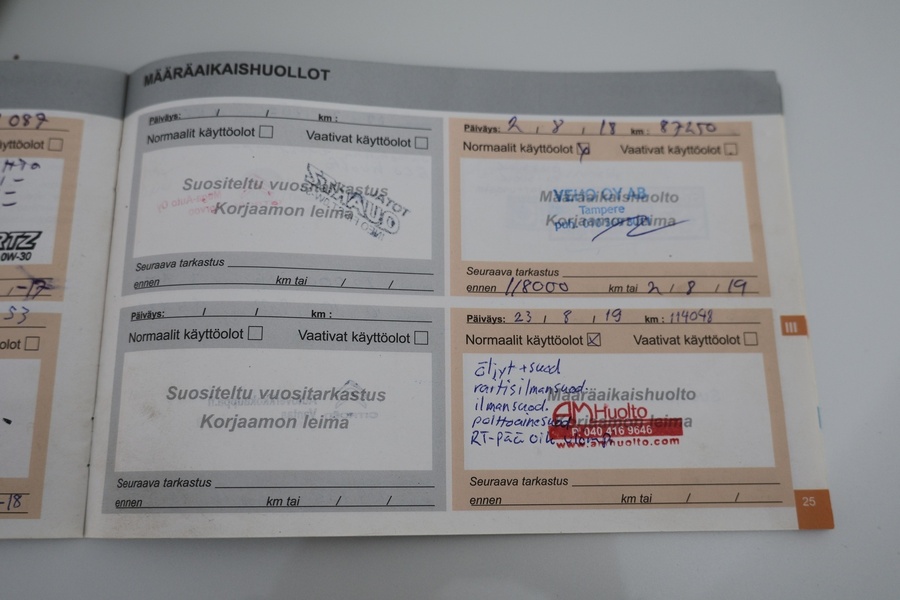 MÄÄRÄAIKAISHUOLLOT
087
äyttöolot
0W-30
Päiväys: / / km:
Normaalit käyttöolot Vaativat käyttöolot
Suositeltu vuositarkastus
Korjaamon leima
Seuraava tarkastus
ennen km tai / /
Päiväys: 2 / 8 / 18 km: 87250
Normaalit käyttöolot Vaativat käyttöolot
Määräaikaishuolto
Korjaamon leima
VEHO OY AB
Tampere
Seuraava tarkastus
ennen 118000 km tai 2 / 8 / 19
53
olot
-18
Päiväys: / / km:
Normaalit käyttöolot Vaativat käyttöolot
Suositeltu vuositarkastus
Korjaamon leima
Seuraava tarkastus
ennen km tai / /
Päiväys: 23 / 8 / 19 km: 114098
Normaalit käyttöolot Vaativat käyttöolot
Öljyt + suod
raitisilmansuod.
ilmansuod.
polttoainesuod
RT-PÄÄ
Määräaikaishuolto
Korjaamon leima
AM Huolto
P. 040 416 9646
www.amhuolto.com
Seuraava tarkastus
ennen km tai / /
III
25